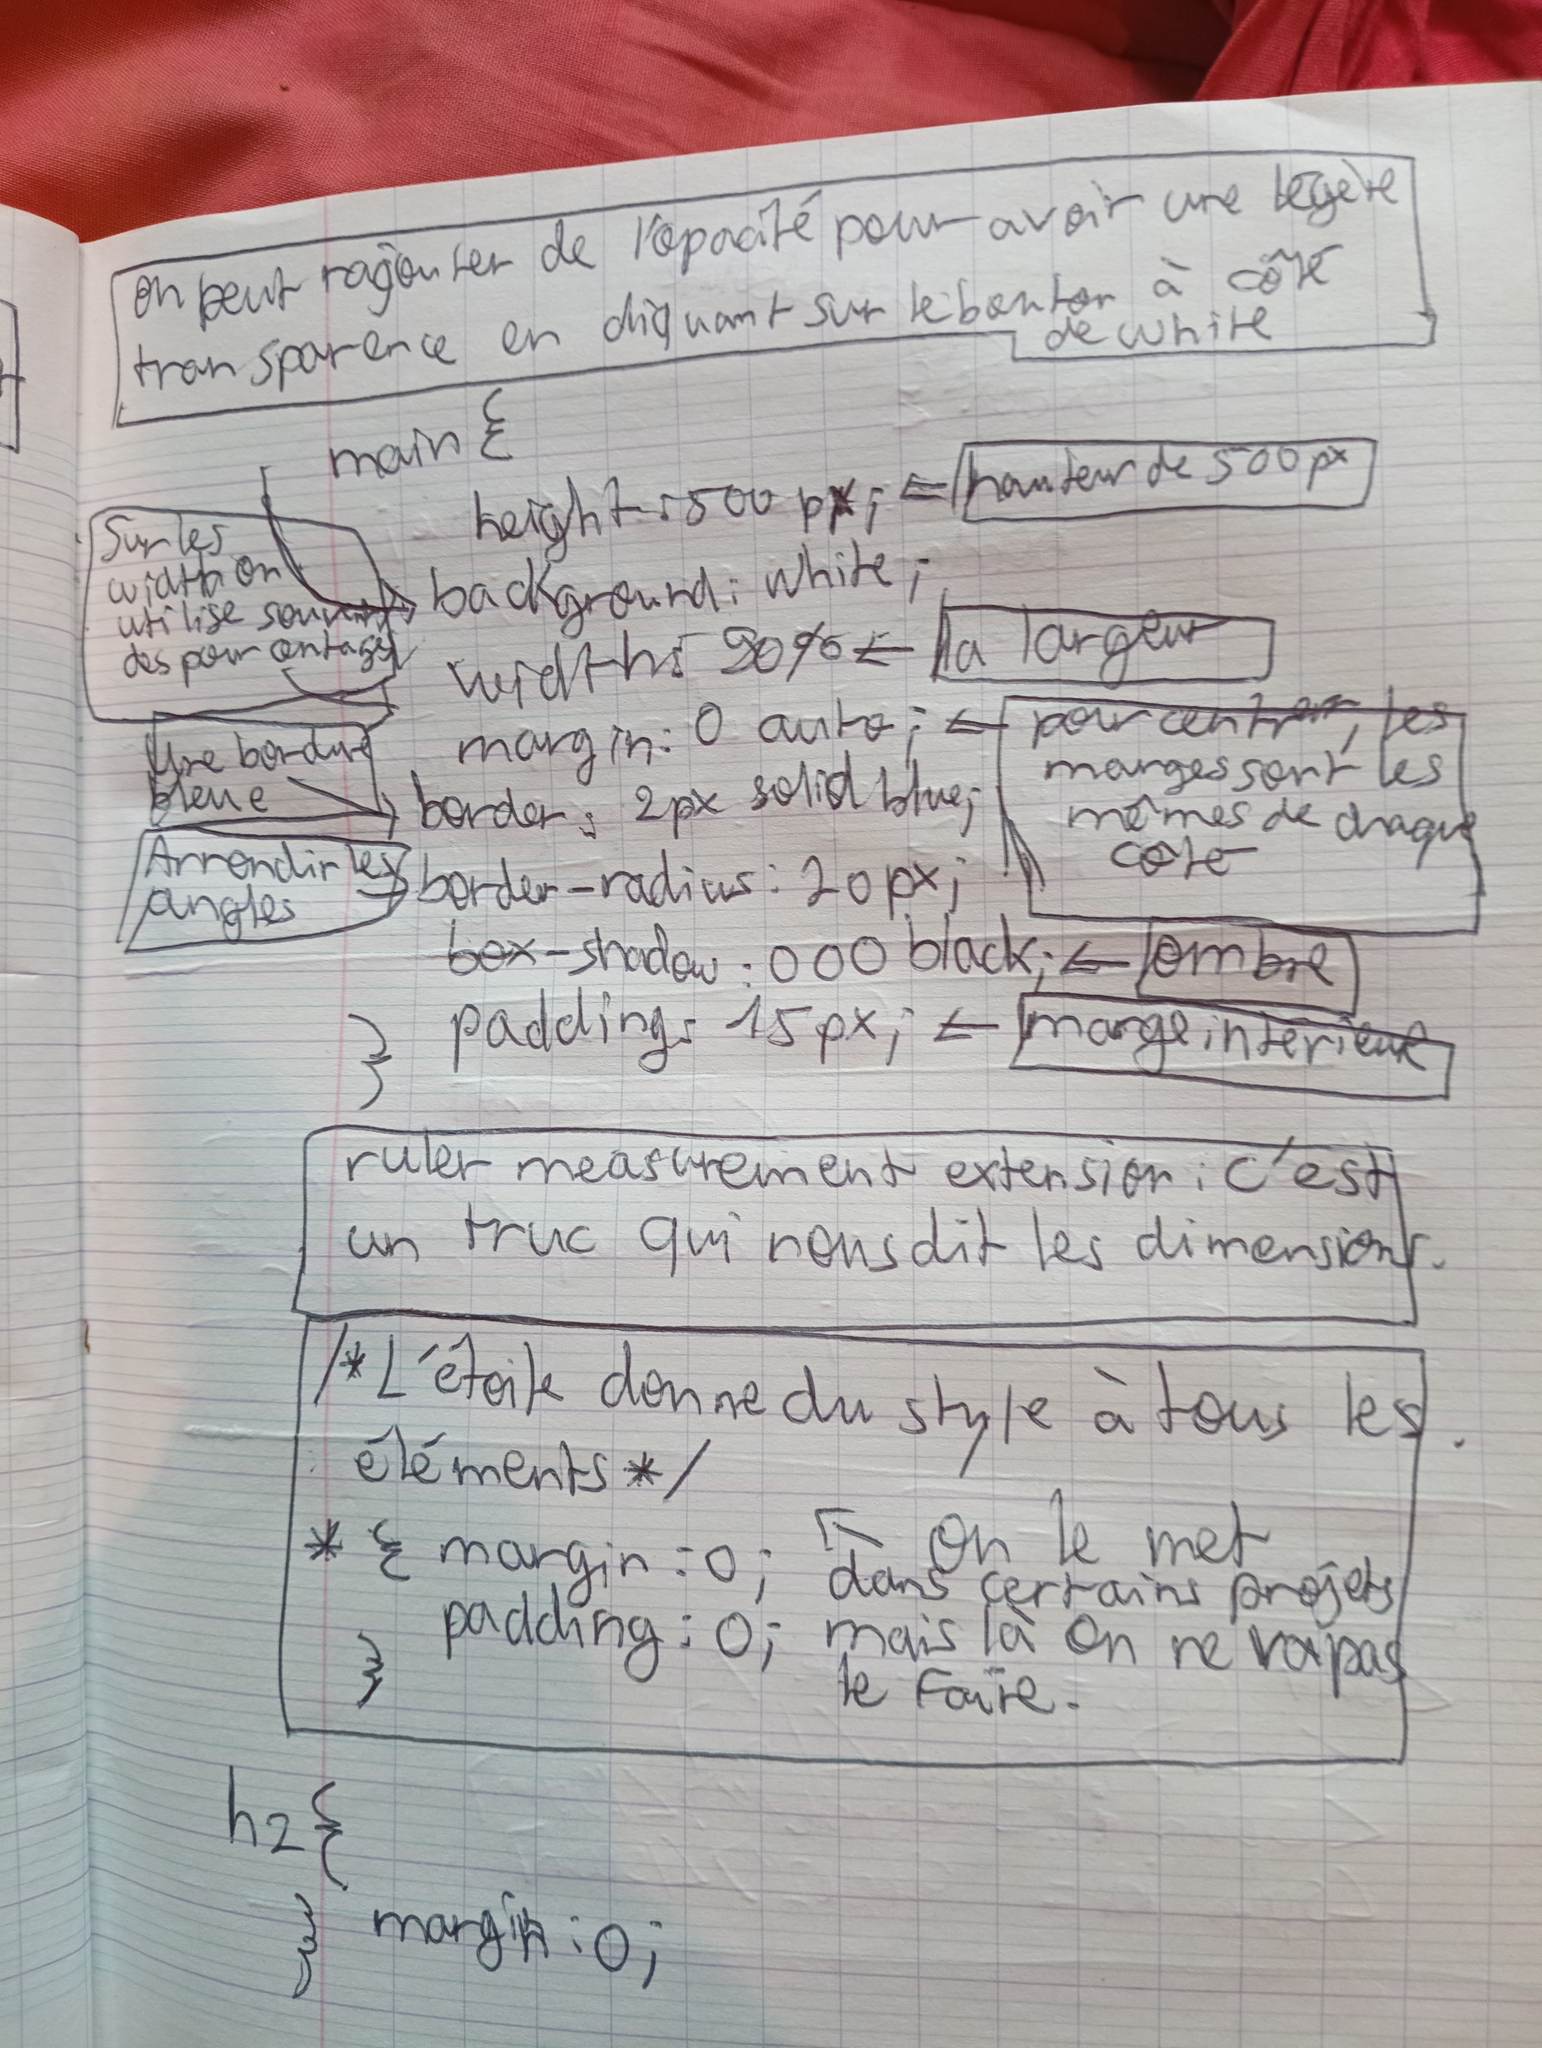 on peut rajouter de l'opacité pour avoir une légère
transparence en cliquant sur le bouton à côté
de white
main {
height : 500 px; ← hauteur de 500 px
Sur les
width on
utilise souvent
des pourcentages
background : white;
width : 90% ← la largeur
margin : 0 auto; ← pour centrer, les
marges sont les
mêmes de chaque
côté
Une bordure
bleue
border : 2px solid blue;
Arrondir les
angles
border-radius : 20px;
box-shadow : 0 0 0 black; ← ombre
padding : 15px; ← marge intérieur
}
ruler measurement extension : c'est
un truc qui nous dit les dimensions.
/* L'étoile donne du style à tous les
éléments */
* { margin : 0; ↖ On le met
dans certains projets
padding : 0; mais là on ne va pas
} le faire.
h2 {
} margin : 0;